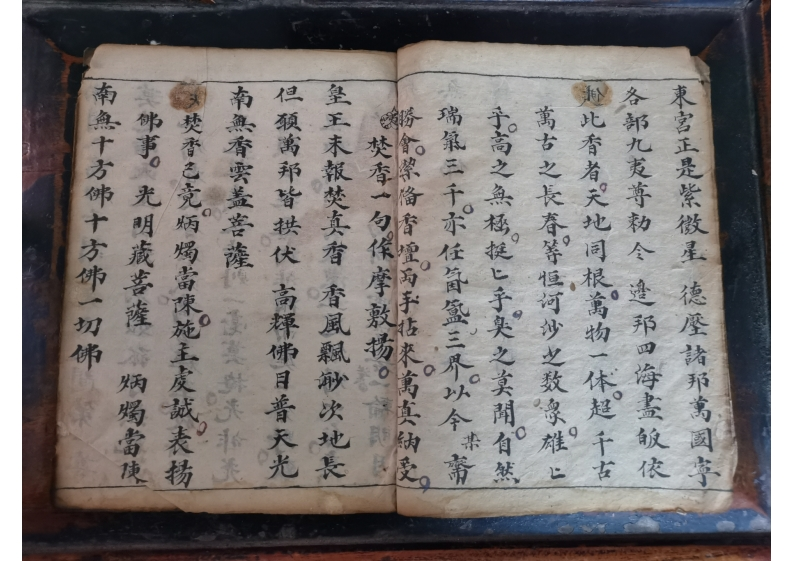 東宮正是紫微星 德壓諸邦萬國寧
各部九夷尊勅令 邊邦四海盡皈依
此香者天地同根萬物一体超千古
萬古之長春等恒河沙之数衆雄〻
乎高之無極挺〻乎臭之莫聞自然
瑞氣三千亦任氤氳三界以今 齋
勝會榮俻香壇両手拈來萬真納受
焚香一句保摩敷揚
皇王未報焚真香 香風飄緲次地長
但願萬邦皆拱伏 高輝佛日普天光
南無香雲盖菩薩
又焚香已竟炳燭當陳施主虔誠表揚
佛事 光明藏菩薩 炳燭當陳
南無十方佛十方佛一切佛